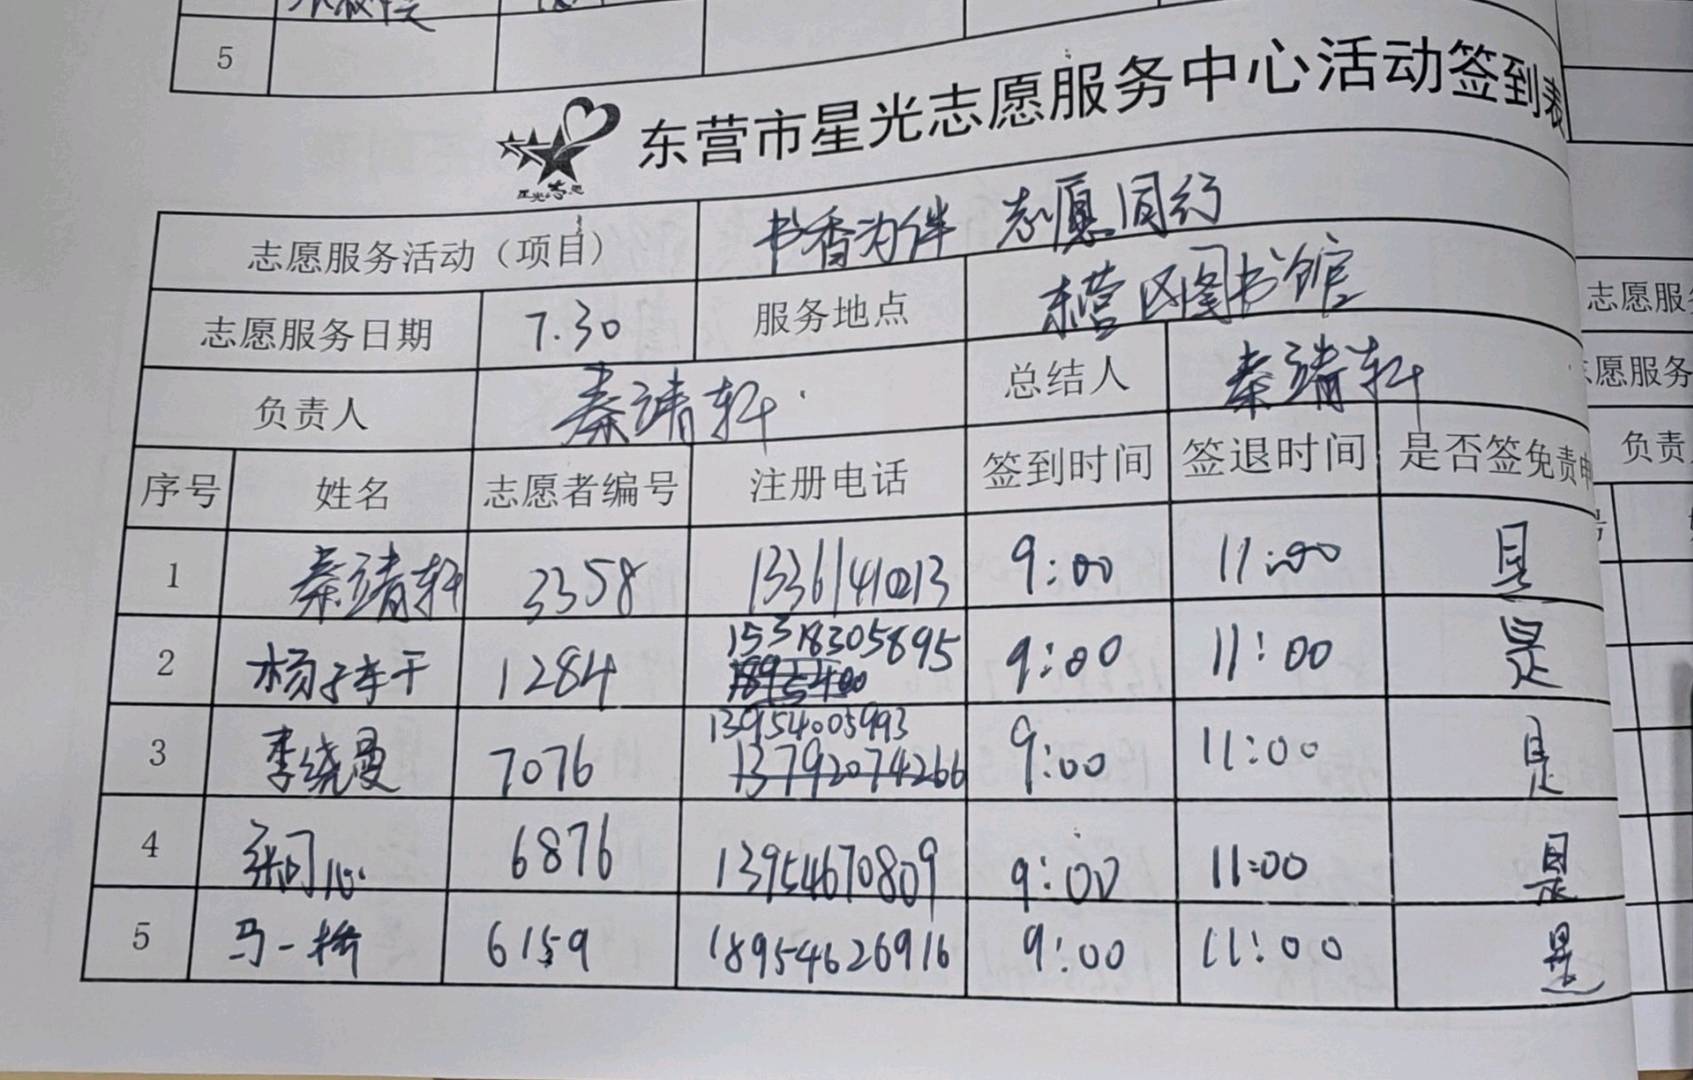 5
东营市星光志愿服务中心活动签到表
星光志愿
志愿服务活动（项目） 书香为伴 志愿同行
志愿服务日期 7.30 服务地点 东营区图书馆
负责人 秦靖轩 总结人 秦靖轩
序号 姓名 志愿者编号 注册电话 签到时间 签退时间 是否签免责申
1 秦靖轩 3358 13361410213 9:00 11:00 是
2 1284 15318305895 9:00 11:00 是
3 李绕曼 7076 13954005993 13792074266 9:00 11:00 是
4 6876 13954670809 9:00 11:00 是
5 马一桥 6159 18954626916 9:00 11:00 是
志愿服
志愿服务
负责
号